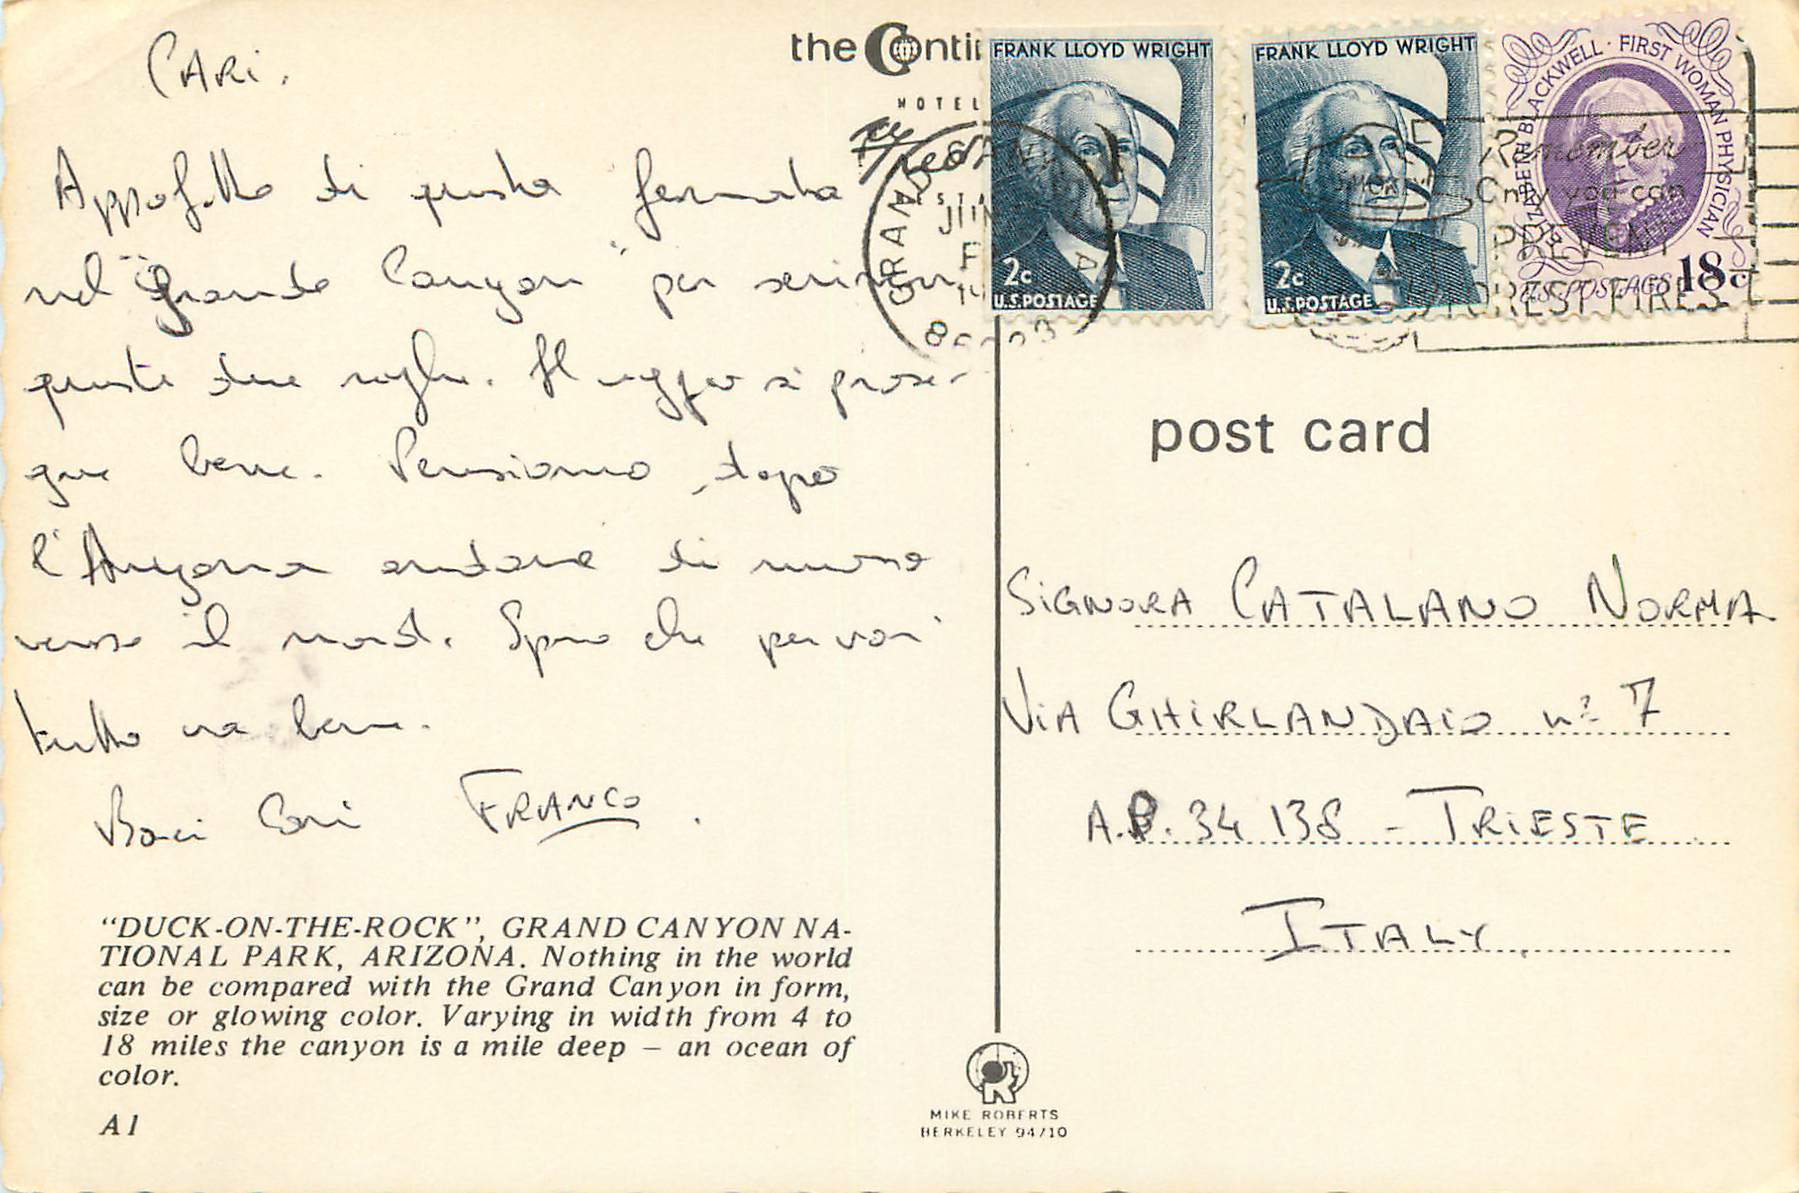 the Conti
HOTEL
CARI.
Approfitto di questa fermata
nel "Grande Canyon" per scrivervi
queste due righe. Il viaggio si prose-
gue bene. Pensiamo, dopo
l'Arizona andare di nuovo
verso il nord. Spero che per voi
tutto va bene.
Baci Cari FRANCO.
"DUCK-ON-THE-ROCK", GRAND CANYON NA-
TIONAL PARK, ARIZONA. Nothing in the world
can be compared with the Grand Canyon in form,
size or glowing color. Varying in width from 4 to
18 miles the canyon is a mile deep – an ocean of
color.
A1
FRANK LLOYD WRIGHT
2c
U.S. POSTAGE
FRANK LLOYD WRIGHT
2c
U.S. POSTAGE
ELIZABETH BLACKWELL · FIRST WOMAN PHYSICIAN
U.S. POSTAGE 18c
GRAND CANYON
JUN
Remember
Only you can
PREVENT
FOREST FIRES
post card
SIGNORA CATALANO NORMA
VIA GHIRLANDAIO nº 7
A.P. 34 138 - TRIESTE
ITALY
MIKE ROBERTS
BERKELEY 94710